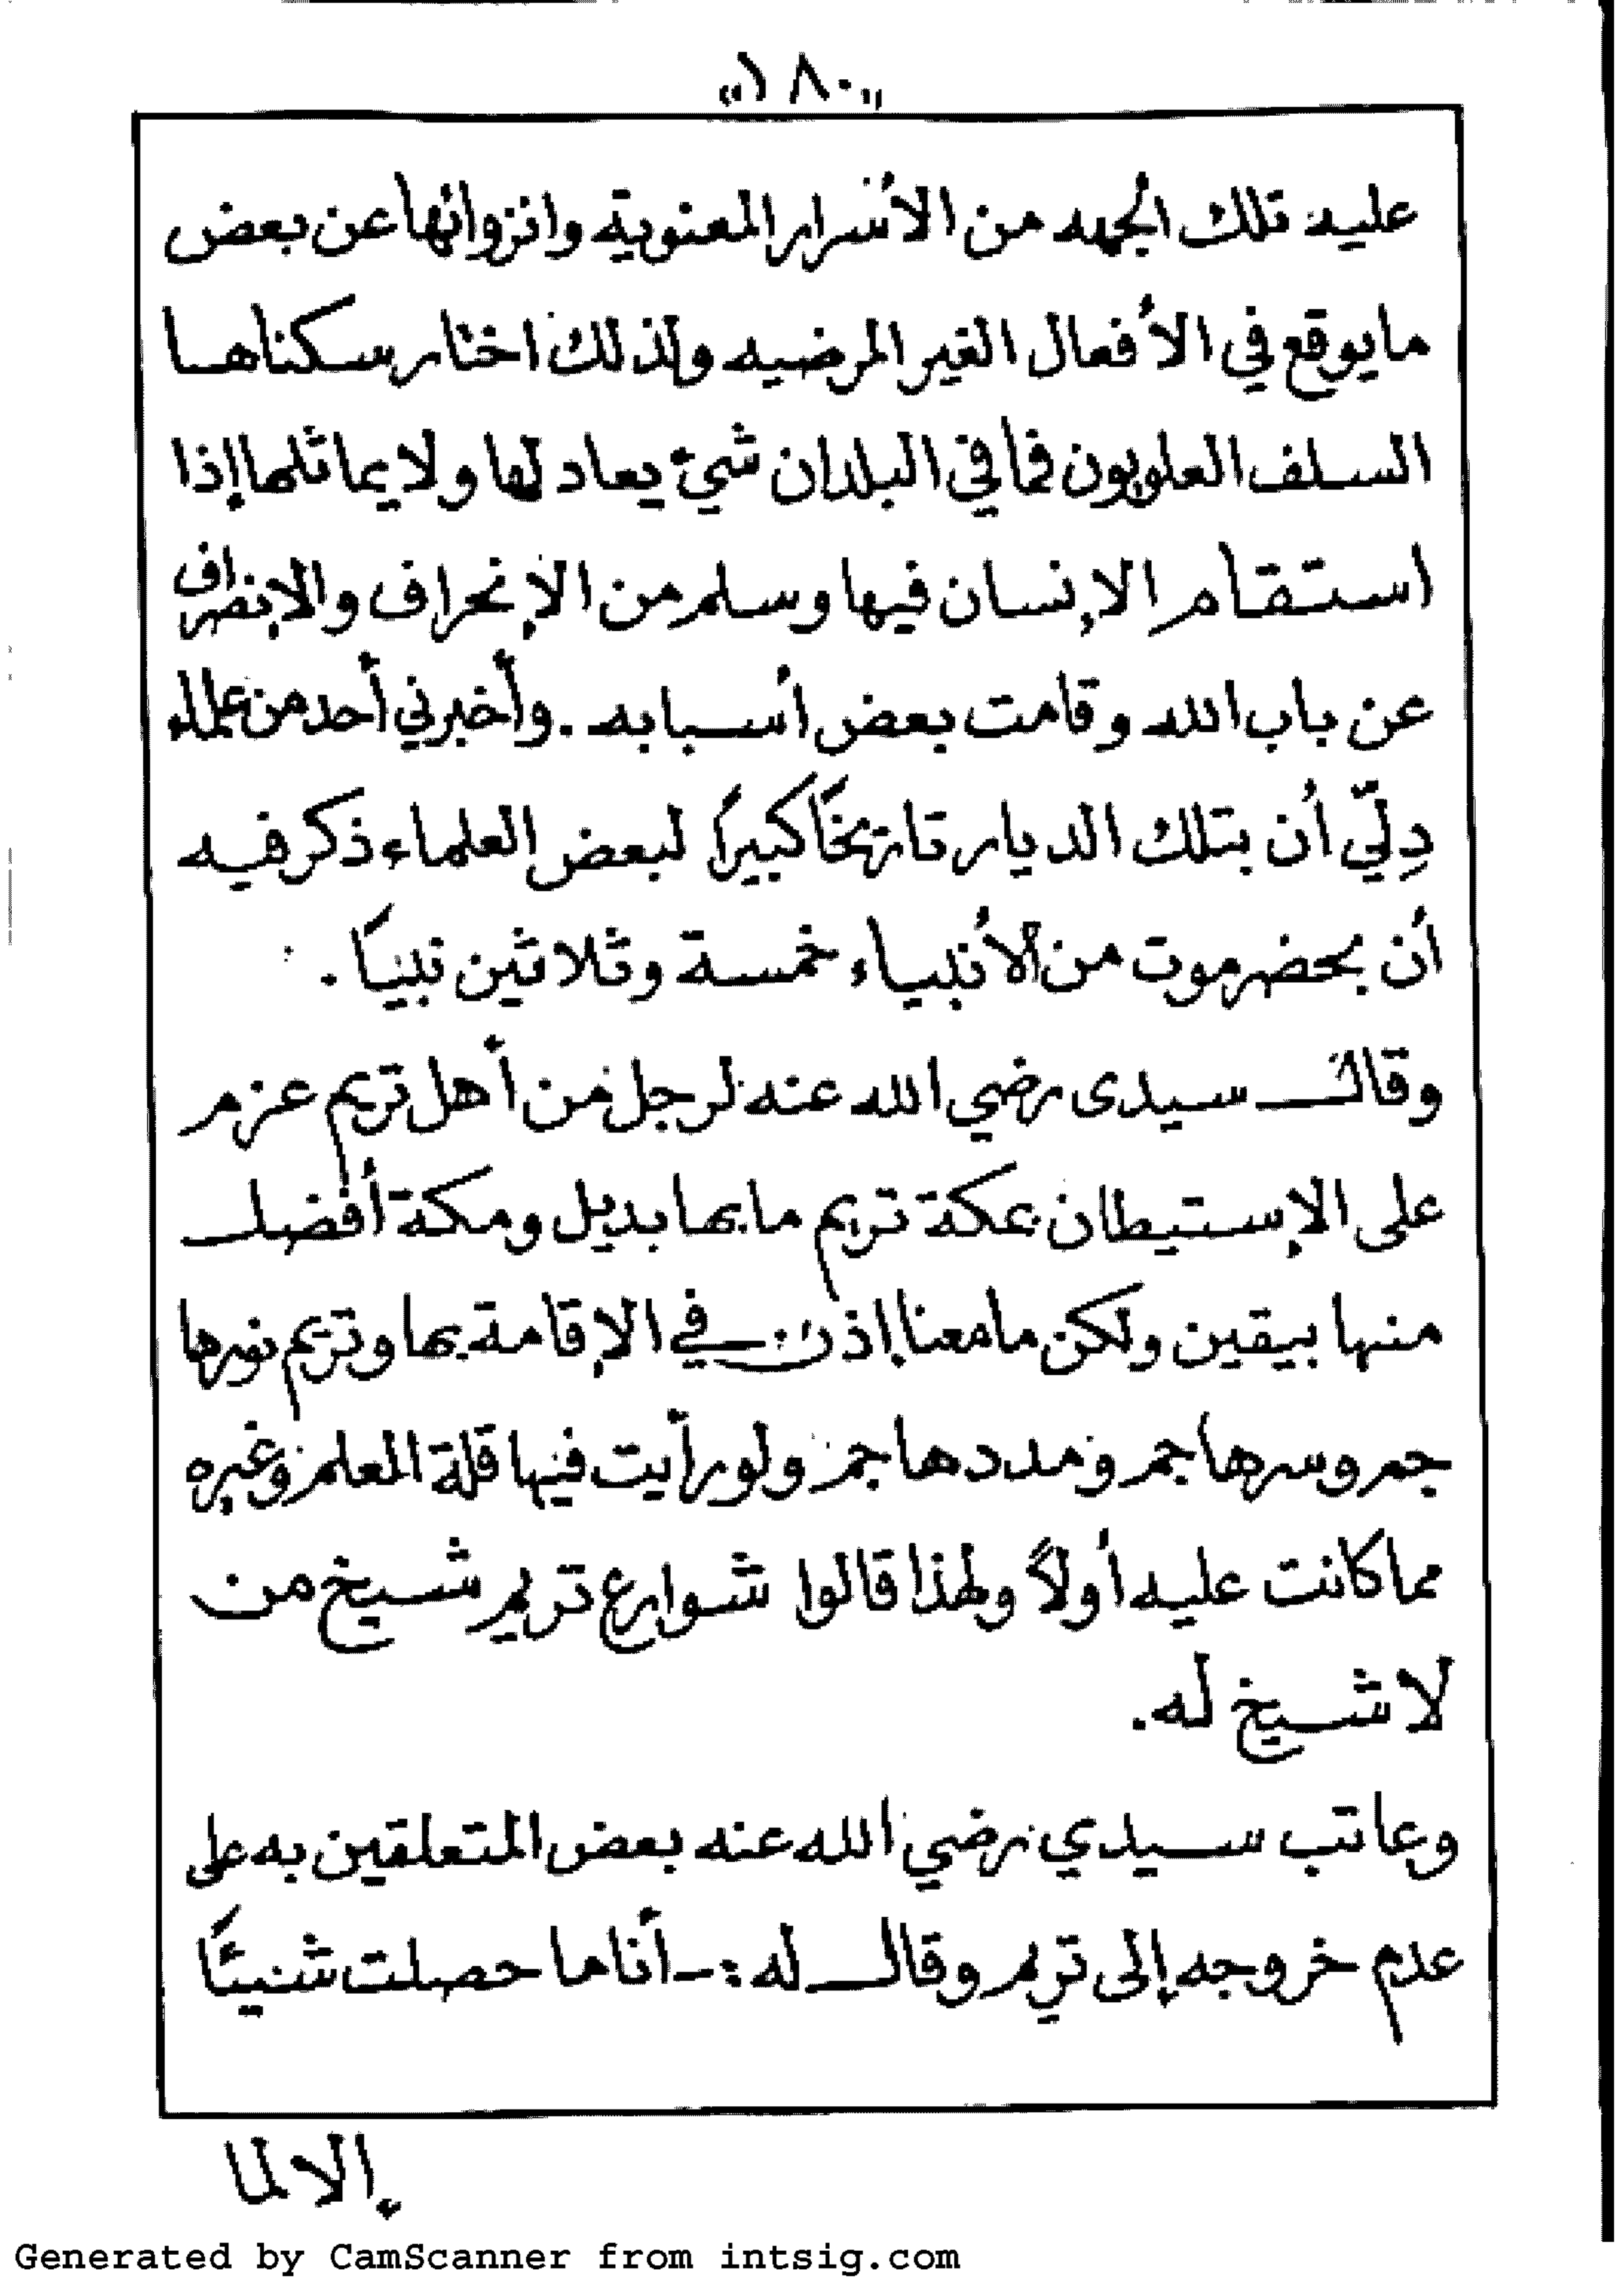 «١٨٠»
عليه تلك الجهه من الأسرار المعنوية وانزوائها عن بعض
ما يوقع في الأفعال الغير المرضيه ولذلك اختار سكناها
السلف العلويون فما في البلدان شيءٌ يعاد لها ولا يماثلها إذا
استقام الإنسان فيها وسلم من الإنحراف والإنصراف
عن باب الله وقامت بعض أسبابه . وأخبرني أحد من علماء
دِلّي أن بتلك الديار تاريخًا كبيرًا لبعض العلماء ذكر فيه
أن بحضرموت من الأنبياء خمسة وثلاثين نبيًا .
وقال سيدى رضي الله عنه لرجل من أهل تريم عزم
على الإستيطان بمكة تريم ما بها بديل ومكة أفضل
منها بيقين ولكن ما معنا إذن في الإقامة بها وتريم نورها
جم وسرها جم ومددها جم ولو رأيت فيها قلة العلم وغيره
مما كانت عليه أولاً ولهذا قالوا شوارع تريم شيخ من
لا شيخ له .
وعاتب سيدي رضي الله عنه بعض المتعلقين به على
عدم خروجه إلى تريم وقال له :- أنا ما حصلت شيئًا
إلا لما
Generated by CamScanner from intsig.com